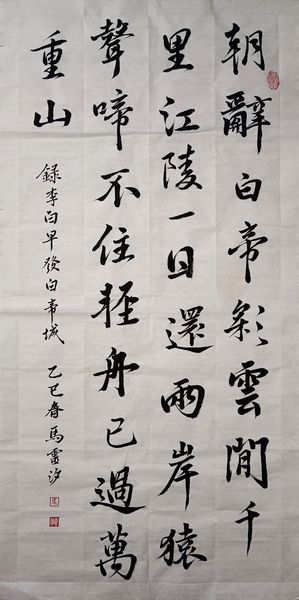 朝辭白帝彩雲間千
里江陵一日還兩岸猿
聲啼不住輕舟已過萬
重山
錄李白早發白帝城
乙巳春馬靈汐